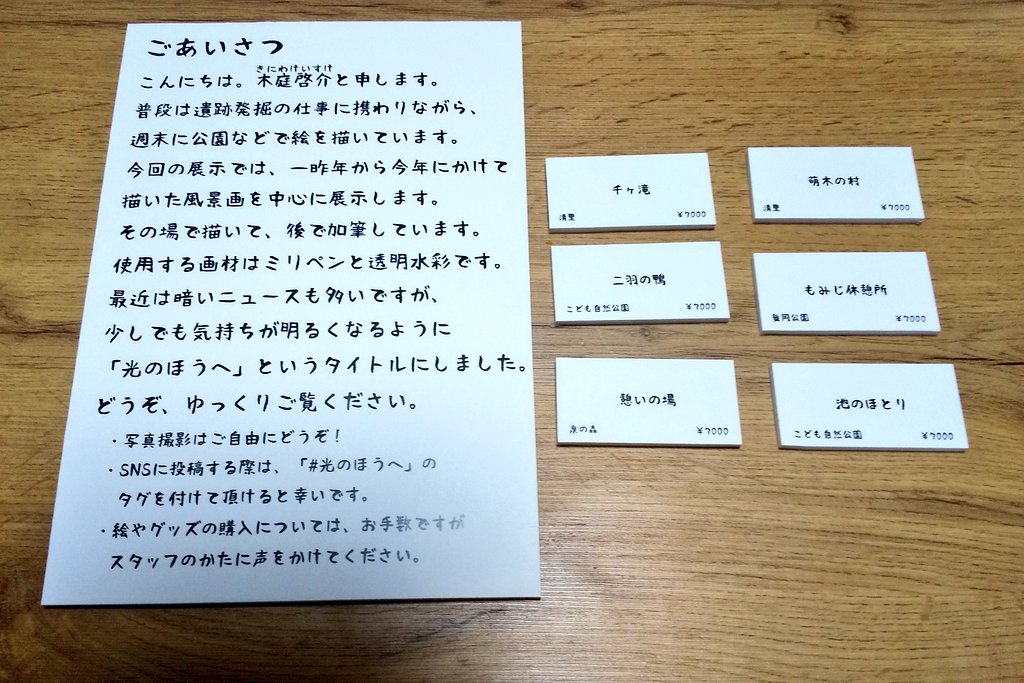 ごあいさつ
きにわけいすけ
こんにちは。木庭啓介と申します。
普段は遺跡発掘の仕事に携わりながら、
週末に公園などで絵を描いています。
今回の展示では、一昨年から今年にかけて
描いた風景画を中心に展示します。
その場で描いて、後で加筆しています。
使用する画材はミリペンと透明水彩です。
最近は暗いニュースも多いですが、
少しでも気持ちが明るくなるように
「光のほうへ」というタイトルにしました。
どうぞ、ゆっくりご覧ください。
・写真撮影はご自由にどうぞ！
・SNSに投稿する際は、「#光のほうへ」の
タグを付けて頂けると幸いです。
・絵やグッズの購入については、お手数ですが
スタッフのかたに声をかけてください。
千ヶ滝
清里 ￥7000
萌木の村
清里 ￥7000
二羽の鴨
こども自然公園 ￥7000
もみじ休憩所
¥7000
憩いの場
泉の森 ￥7000
池のほとり
こども自然公園 ￥7000